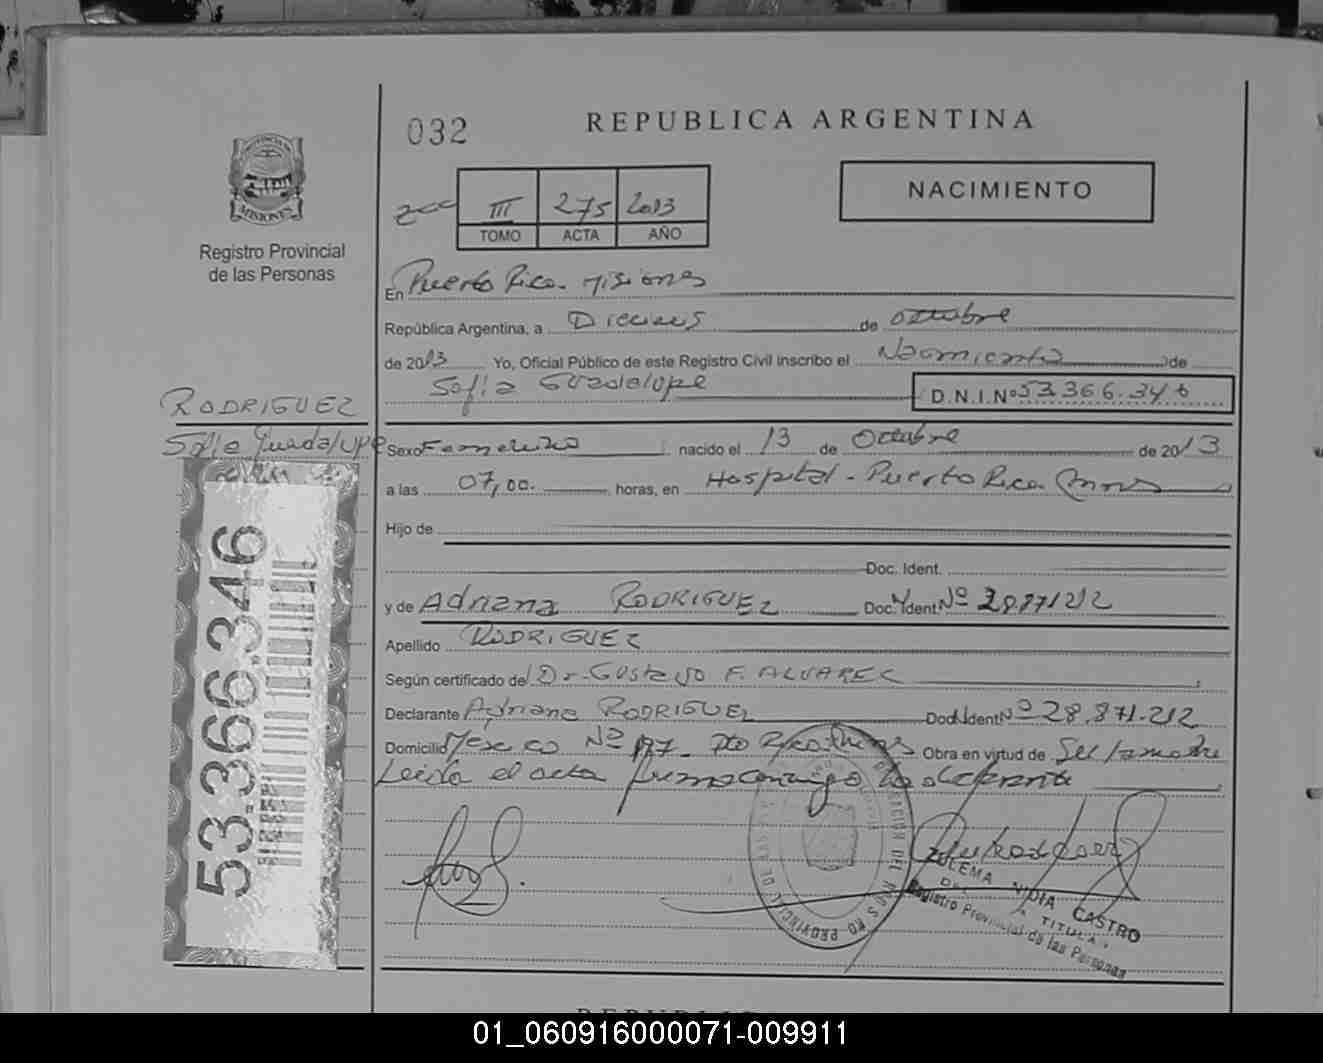 032
REPUBLICA ARGENTINA
NACIMIENTO
III 275 2013
TOMO ACTA AÑO
MISIONES
Registro Provincial
de las Personas
En Puerto Rico. Misiones
República Argentina, a Dieciseis de octubre
de 2013 Yo, Oficial Público de este Registro Civil inscribo el Nacimiento de
Sofia Guadalupe D.N.I.Nº 53.366.346
RODRIGUEZ
Sofia Guadalupe
Sexo Femenino nacido el 13 de Octubre de 2013
a las 07,00. horas, en Hospital - Puerto Rico
Hijo de
Doc. Ident.
y de Adriana RODRIGUEZ Doc. Ident Nº 28.871.212
Apellido RODRIGUEZ
Según certificado del Dr. Gustavo F. ALVAREZ
Declarante Adriana RODRIGUEZ Doc. Ident Nº 28.871.212
Domicilio Mexico Nº Obra en virtud de Ser la madre
Leida el acta la declarante
53.366.346
REGISTRO PROVINCIAL DE LAS
ZULEMA NIDIA CASTRO
TITULAR
Registro Provincial de las Personas
01_060916000071-009911